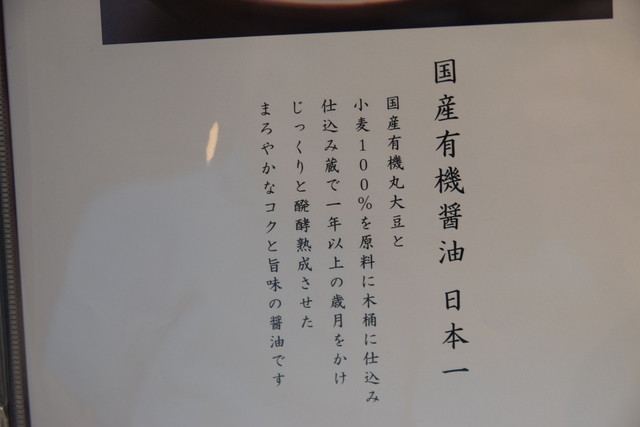 国産有機醤油 日本一
国産有機丸大豆と
小麦100%を原料に木桶に仕込み
仕込み蔵で一年以上の歳月をかけ
じっくりと醗酵熟成させた
まろやかなコクと旨味の醤油です